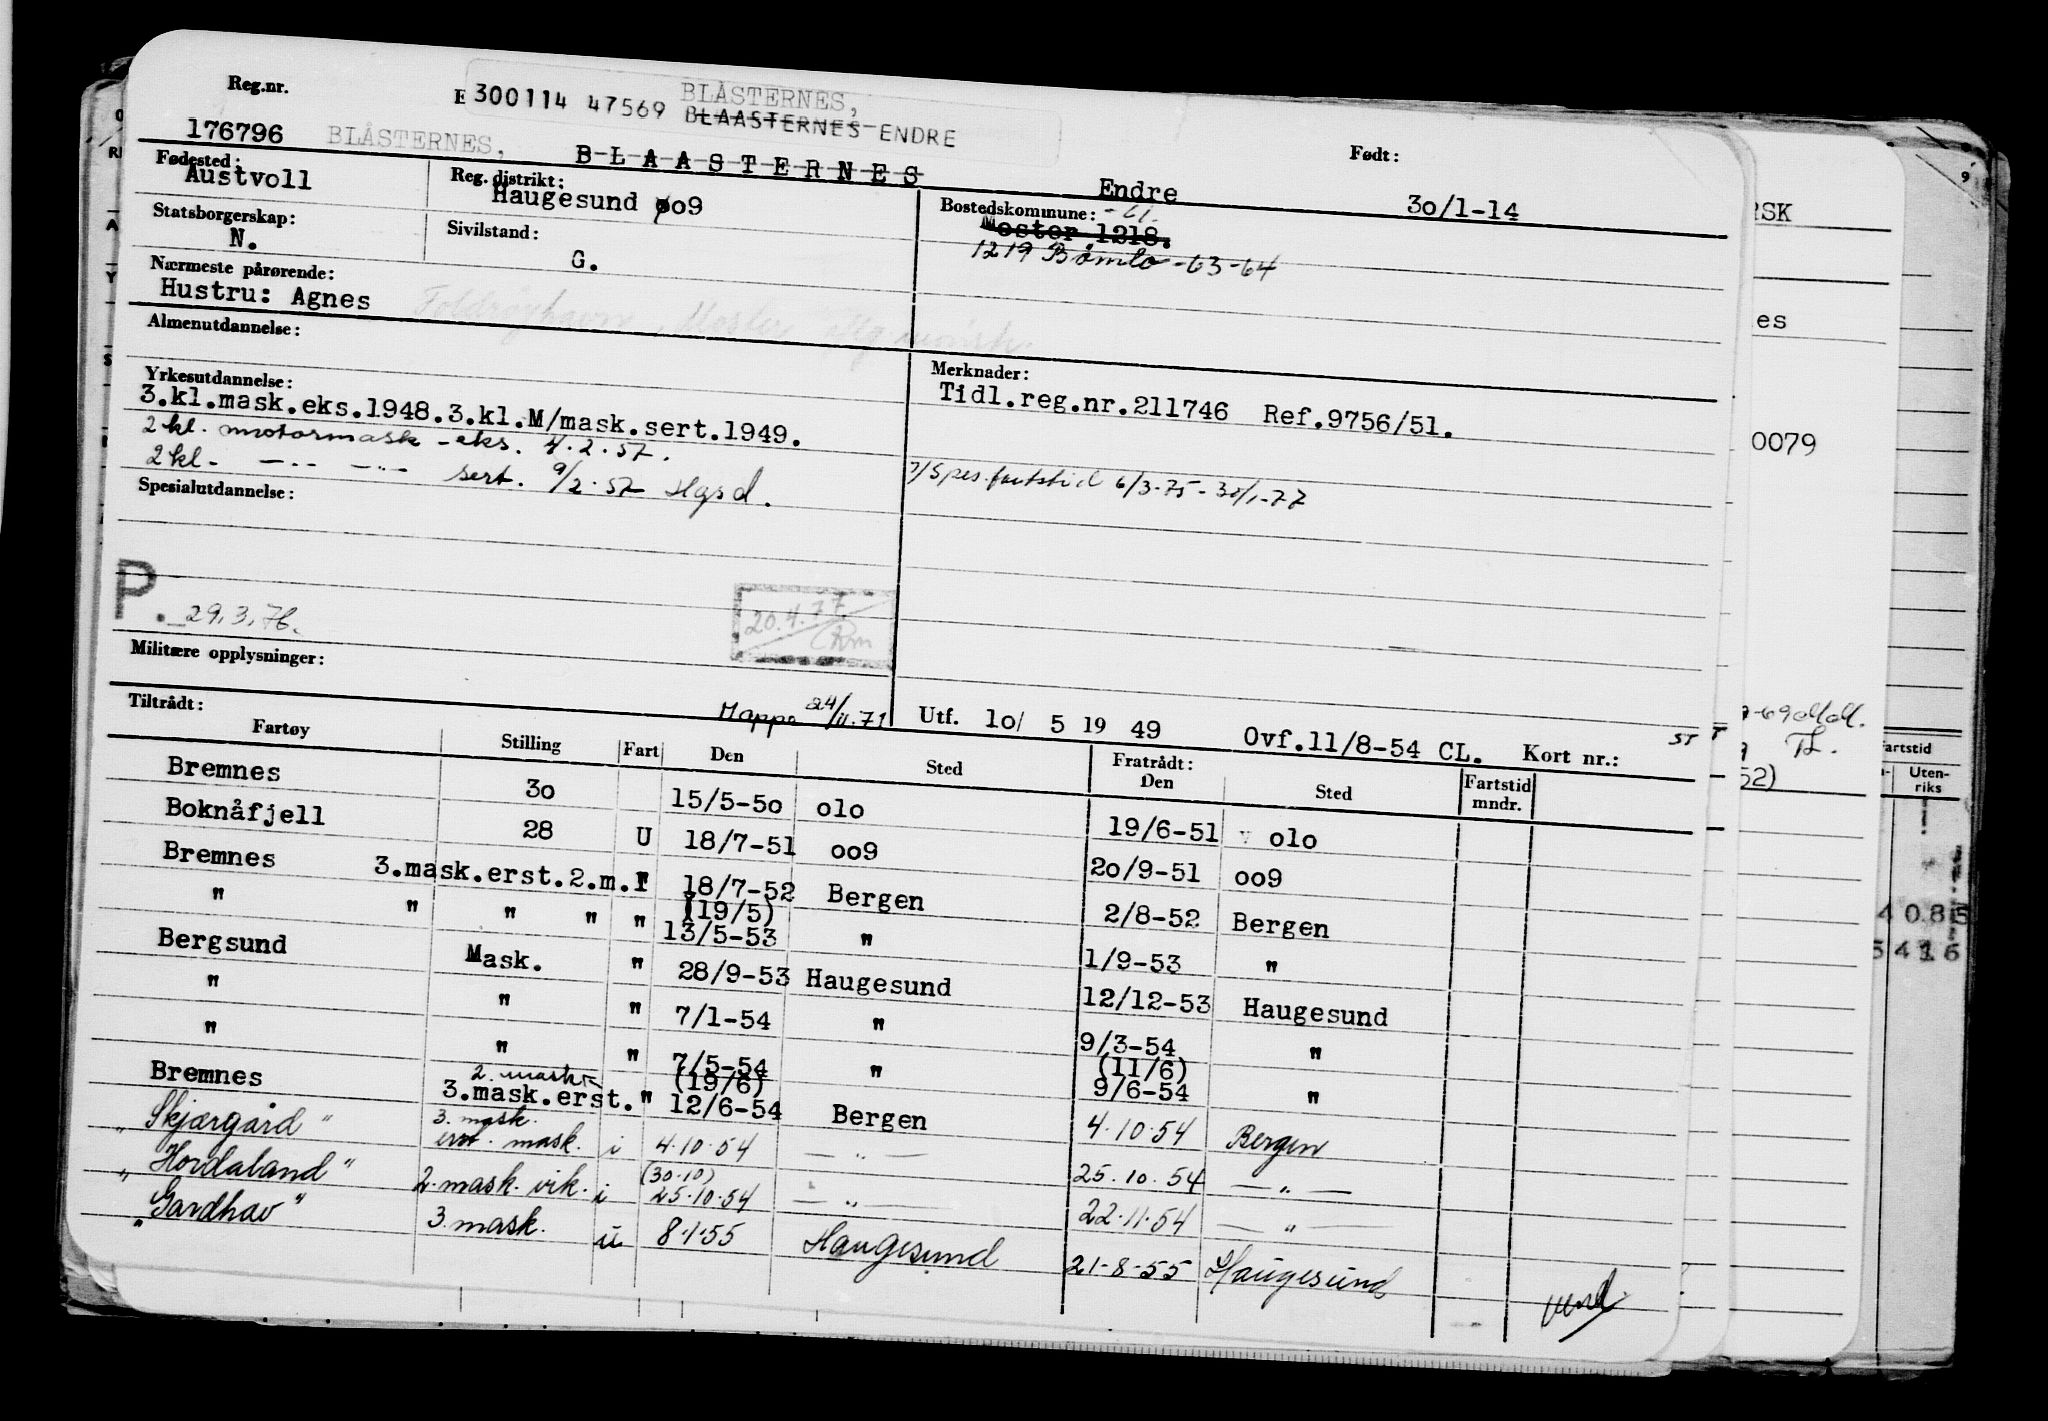 Reg.nr.
E 300114 47569 BLÅSTERNES,
BLAASTERNES ENDRE
176796 BLÅSTERNES, BLAASTERNES Endre
Født:
30/1-14
Fødested:
Austvoll
Reg. distrikt:
Haugesund oo9
Bostedskommune: -61.
Moster. 1218.
1219 Bømlo -63-64
Statsborgerskap:
N.
Sivilstand:
G.
Nærmeste pårørende:
Hustru: Agnes Foldrøyhavn, Moster
Almenutdannelse:
Yrkesutdannelse:
3.kl.mask.eks.1948.3.kl.M/mask.sert.1949.
2 kl. motormask-eks. 4.2.57.
2 kl. -"- -"- sert. 9/2.57 Hgsd.
Merknader:
Tidl.reg.nr.211746 Ref.9756/51.
Spes.fartstid 6/3-75 - 30/1-77
Spesialutdannelse:
P. 29.3.76.
20.4.77
Rm
Militære opplysninger:
Tiltrådt:
Mappe 24/11.71
Utf. 10/ 5 19 49 Ovf.11/8-54 CL. Kort nr.:
ST
Fartøy Stilling Fart Den Sted Fratrådt: Den Sted Fartstid mndr.
Bremnes 30 15/5-50 olo 19/6-51 olo
Boknåfjell 28 U 18/7-51 oo9 20/9-51 oo9
Bremnes 3.mask.erst.2.m. I 18/7-52 Bergen 2/8-52 Bergen
(19/5)
" " " " " 13/5-53 " 1/9-53 "
Bergsund Mask. " 28/9-53 Haugesund 12/12-53 Haugesund
" " " 7/1-54 " 9/3-54 "
" " " 7/5-54 " (11/6) 9/6-54 "
2. mask.
(19/6)
Bremnes 3.mask.erst. " 12/6-54 Bergen 4.10.54 Bergen
3. mask.
"Skjærgård" erst. mask. i 4.10.54 -"- 25.10.54 -"-
(30.10)
"Hordaland" 2. mask. vik. i 25.10.54 -"- 22.11.54 -"-
"Gardhav" 3. mask. u 8.1.55 Haugesund 21-8-55 Haugesund
vend
RSK
es
0079
TL.
52)
Fartstid
Uten-
riks